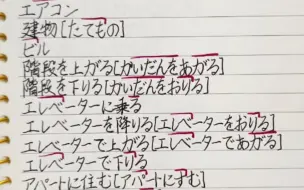 エアコン
建物[たてもの]
ビル
階段を上がる[かいだんをあがる]
階段を下りる[かいだんをおりる]
エレベーターに乗る
エレベーターを降りる[エレベーターをおりる]
エレベーターで上がる[エレベーターであがる]
エレベーターで下りる
アパートに住む[アパートにすむ]